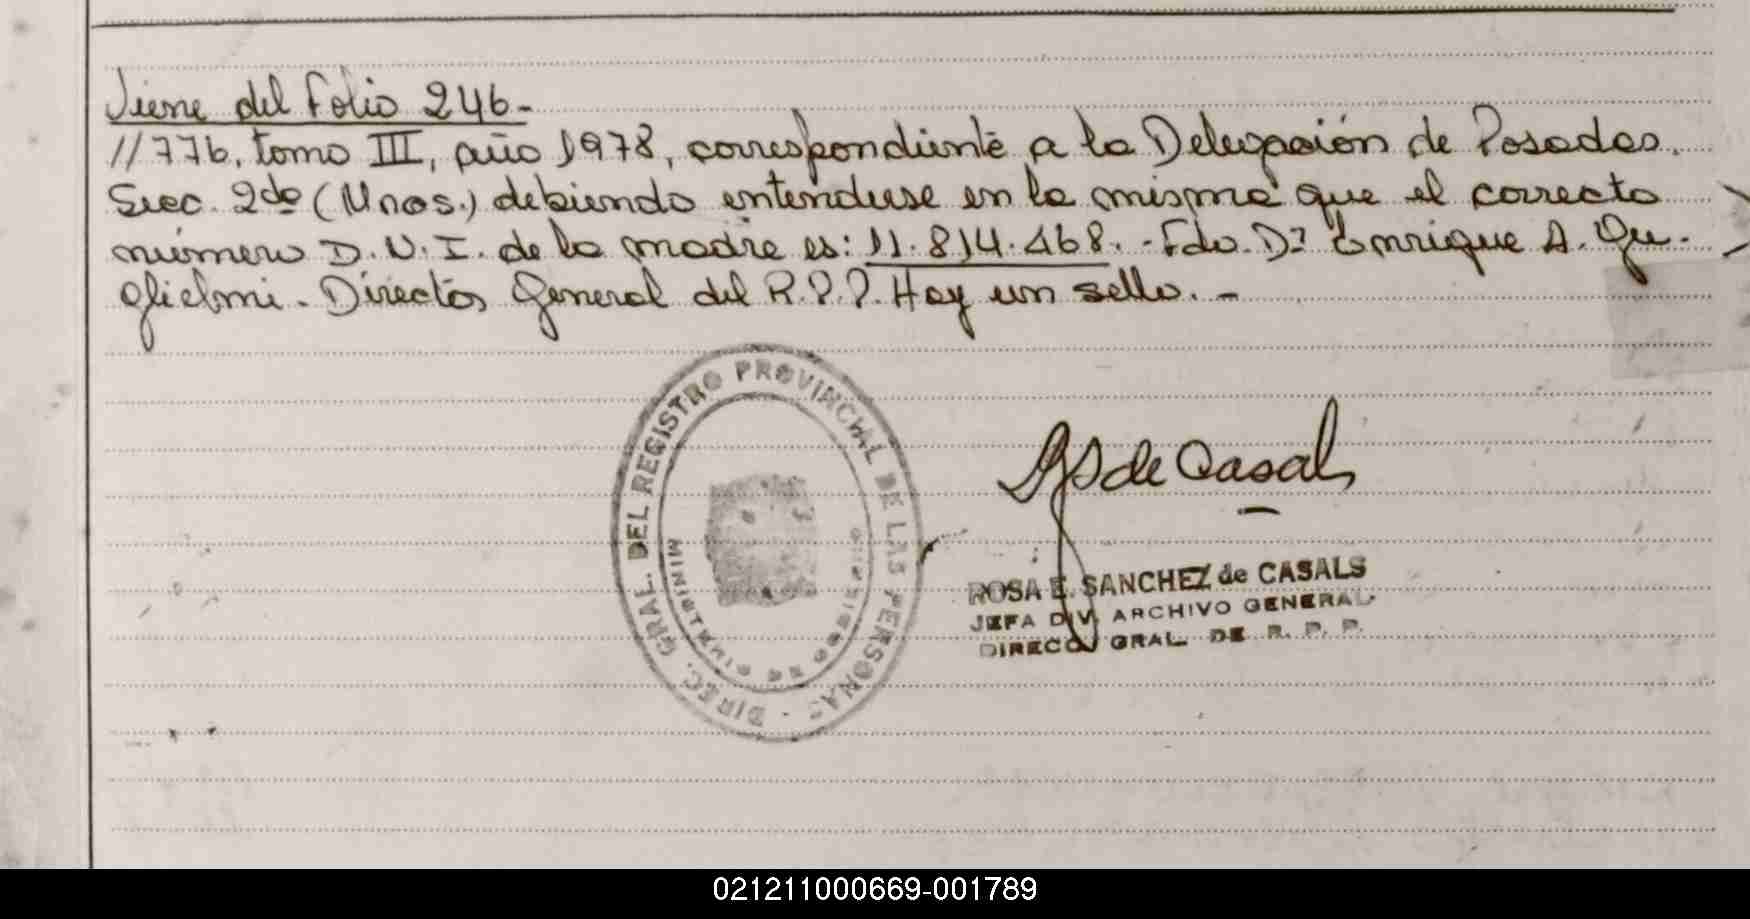 Viene del Folio 246-
//776, tomo III, año 1978, correspondiente a la Delegación de Posadas.
Secc. 2da (Mnes.) debiendo entenderse en la misma que el correcto
número D.N.I. de la madre es: 11.814.468. - Fdo. Dr. Enrique A. Gu-
glielmi - Director General del R.P.P. Hay un sello. -
DIREC. GRAL. DEL REGISTRO PROVINCIAL DE LAS PERSONAS -
MINISTERIO DE GOBIERNO
de Casal
ROSA E. SANCHEZ de CASALS
JEFA DIV. ARCHIVO GENERAL
DIREC. GRAL. DE R. P. P.
021211000669-001789